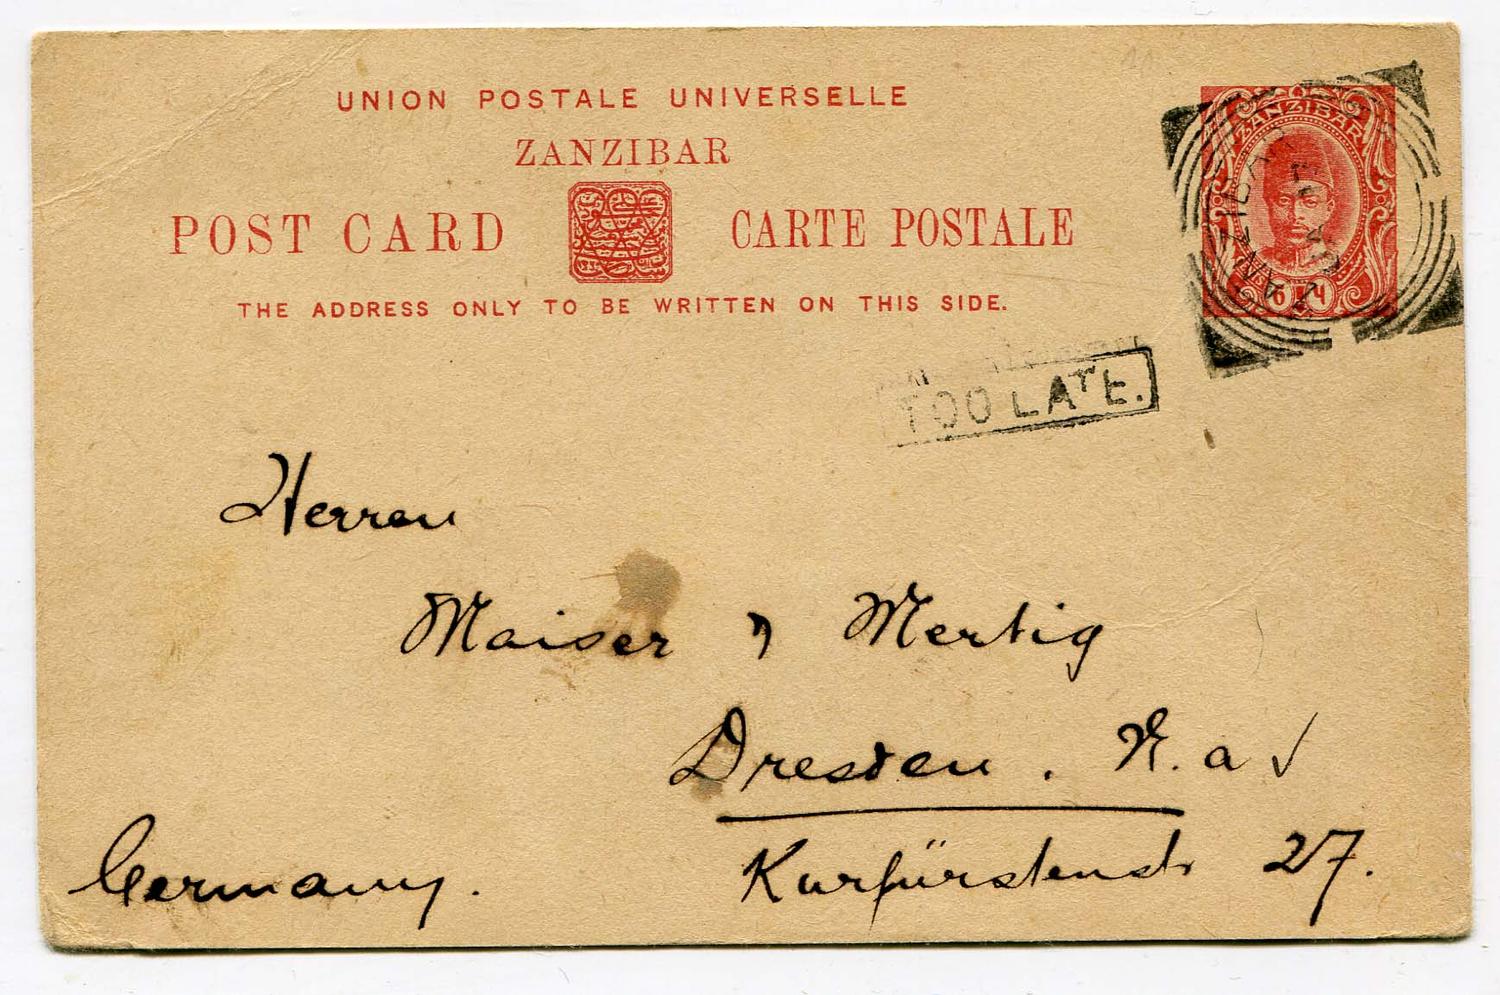 UNION POSTALE UNIVERSELLE
ZANZIBAR
POST CARD CARTE POSTALE
THE ADDRESS ONLY TO BE WRITTEN ON THIS SIDE.
ZANZIBAR
6
ZANZIBAR
TOO LATE.
Herren
Maiser & Mertig
Dresden. N. a
Kurfürstenst 27.
Germany.